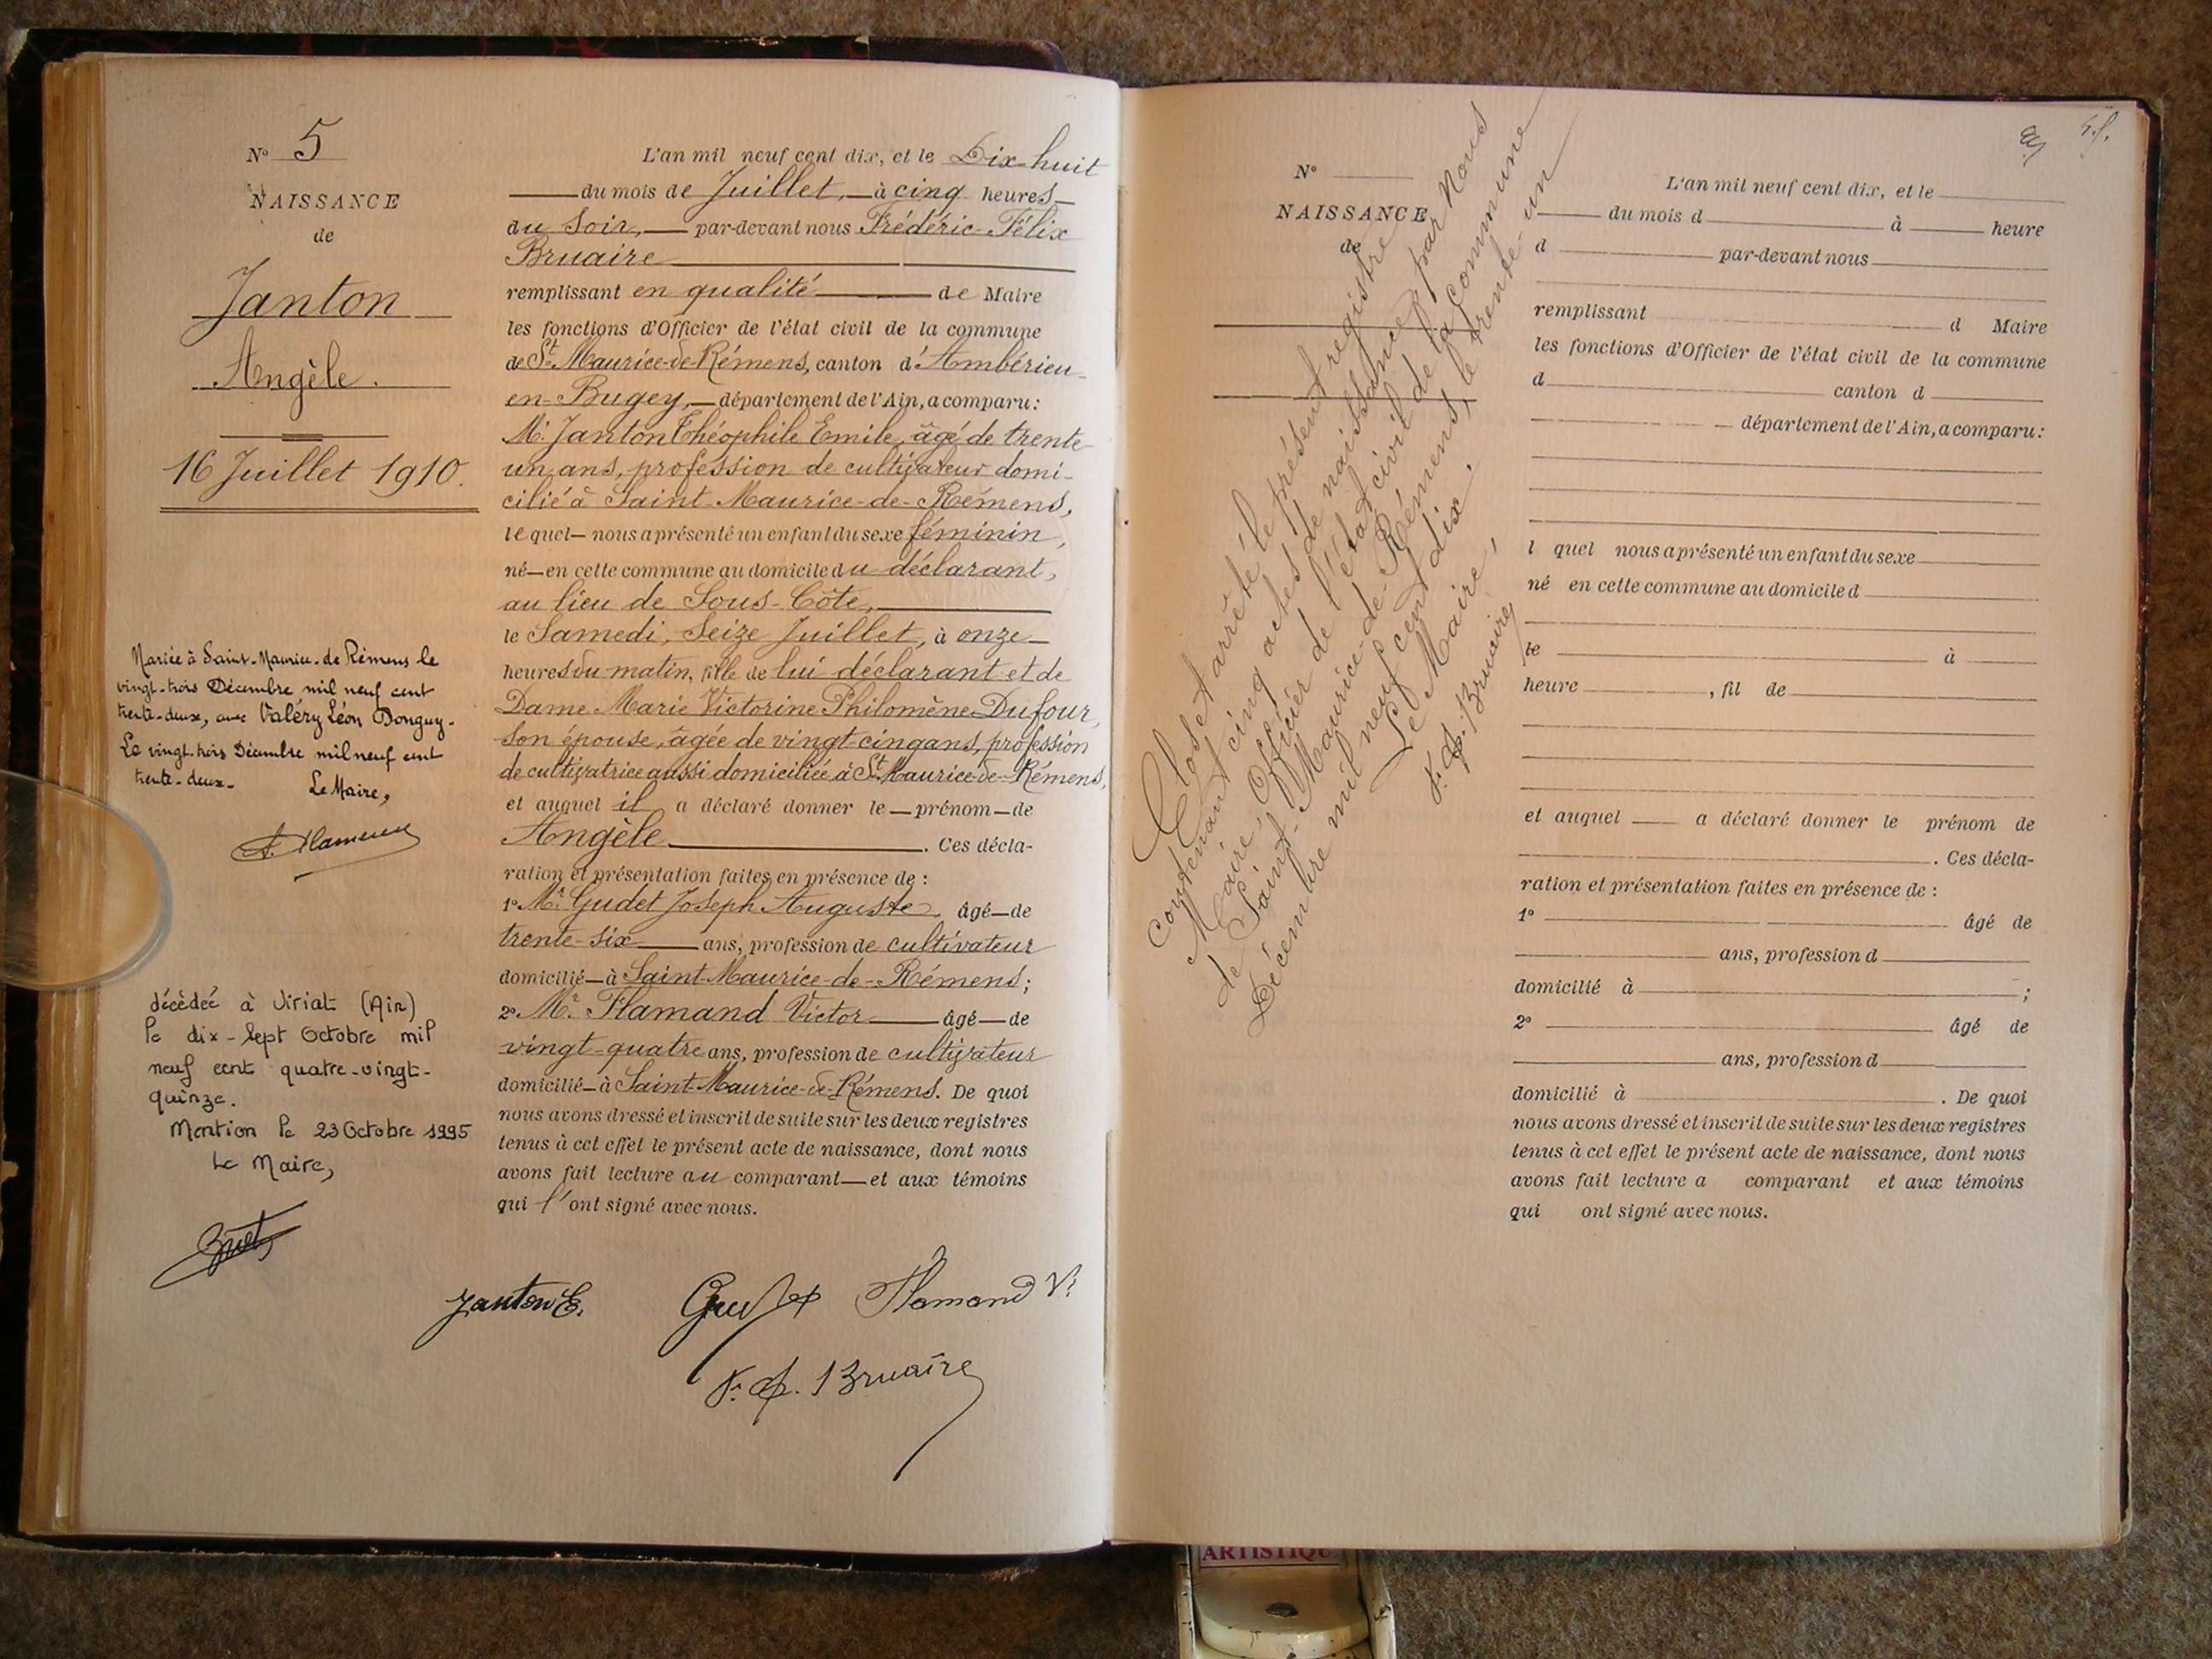 N° 5
NAISSANCE
de
Janton
Angèle.
16 Juillet 1910.
Mariée à Saint-Maurice-de Rémens le
vingt-trois Décembre mil neuf cent
trente-deux, avec Valéry Léon Donguy-
Le vingt-trois Décembre mil neuf cent
trente-deux-
Le Maire,
décédée à Viriat (Ain)
le dix-sept Octobre mil
neuf cent quatre-vingt-
quinze.
Mention le 23 Octobre 1995
Le Maire,
L'an mil neuf cent dix, et le Dix-huit
du mois de Juillet, à cinq heures
du Soir, par-devant nous Frédéric-Félix
Bruaire
remplissant en qualité de Maire
les fonctions d'Officier de l'état civil de la commune
de St Maurice-de-Rémens, canton d'Ambérieu-
en-Bugey, département de l'Ain, a comparu:
Mr. Janton Théophile Emile, âgé de trente-
un ans, profession de cultivateur domi-
cilié à Saint-Maurice-de-Rémens,
lequel nous a présenté un enfant du sexe féminin,
né en cette commune au domicile du déclarant,
au lieu de Sous-Côte,
le Samedi, Seize Juillet, à onze
heures du matin, fille de lui déclarant et de
Dame Marie Victorine Philomène Dufour,
son épouse, âgée de vingt-cinq ans, profession
de cultivatrice aussi domiciliée à St Maurice-de-Rémens,
et auquel il a déclaré donner le prénom de
Angèle. Ces décla-
ration et présentation faites en présence de :
1° Mr Gudet Joseph Auguste âgé de
trente-six ans, profession de cultivateur
domicilié à Saint-Maurice-de-Rémens;
2° Mr. Flamand Victor âgé de
vingt-quatre ans, profession de cultivateur
domicilié à Saint-Maurice-de-Rémens. De quoi
nous avons dressé et inscrit de suite sur les deux registres
tenus à cet effet le présent acte de naissance, dont nous
avons fait lecture au comparant et aux témoins
qui l'ont signé avec nous.
Janton E. Gudet Flamand V.
F. F. Bruaire
N°
NAISSANCE
de
Clos et arrêté le présent registre
contenant cinq actes de naissance, par Nous
Maire, Officier de l'état civil de la commune
de Saint-Maurice-de-Rémens, le trente-un
Décembre mil neuf cent dix.
Le Maire,
F. F. Bruaire
L'an mil neuf cent dix, et le
du mois d à heure
d par-devant nous
remplissant d Maire
les fonctions d'Officier de l'état civil de la commune
d canton d
département de l'Ain, a comparu:
l quel nous a présenté un enfant du sexe
né en cette commune au domicile d
le à
heure , fil de
et auquel a déclaré donner le prénom de
. Ces décla-
ration et présentation faites en présence de :
1° âgé de
ans, profession d
domicilié à ;
2° âgé de
ans, profession d
domicilié à . De quoi
nous avons dressé et inscrit de suite sur les deux registres
tenus à cet effet le présent acte de naissance, dont nous
avons fait lecture a comparant et aux témoins
qui ont signé avec nous.
ARTISTIQU